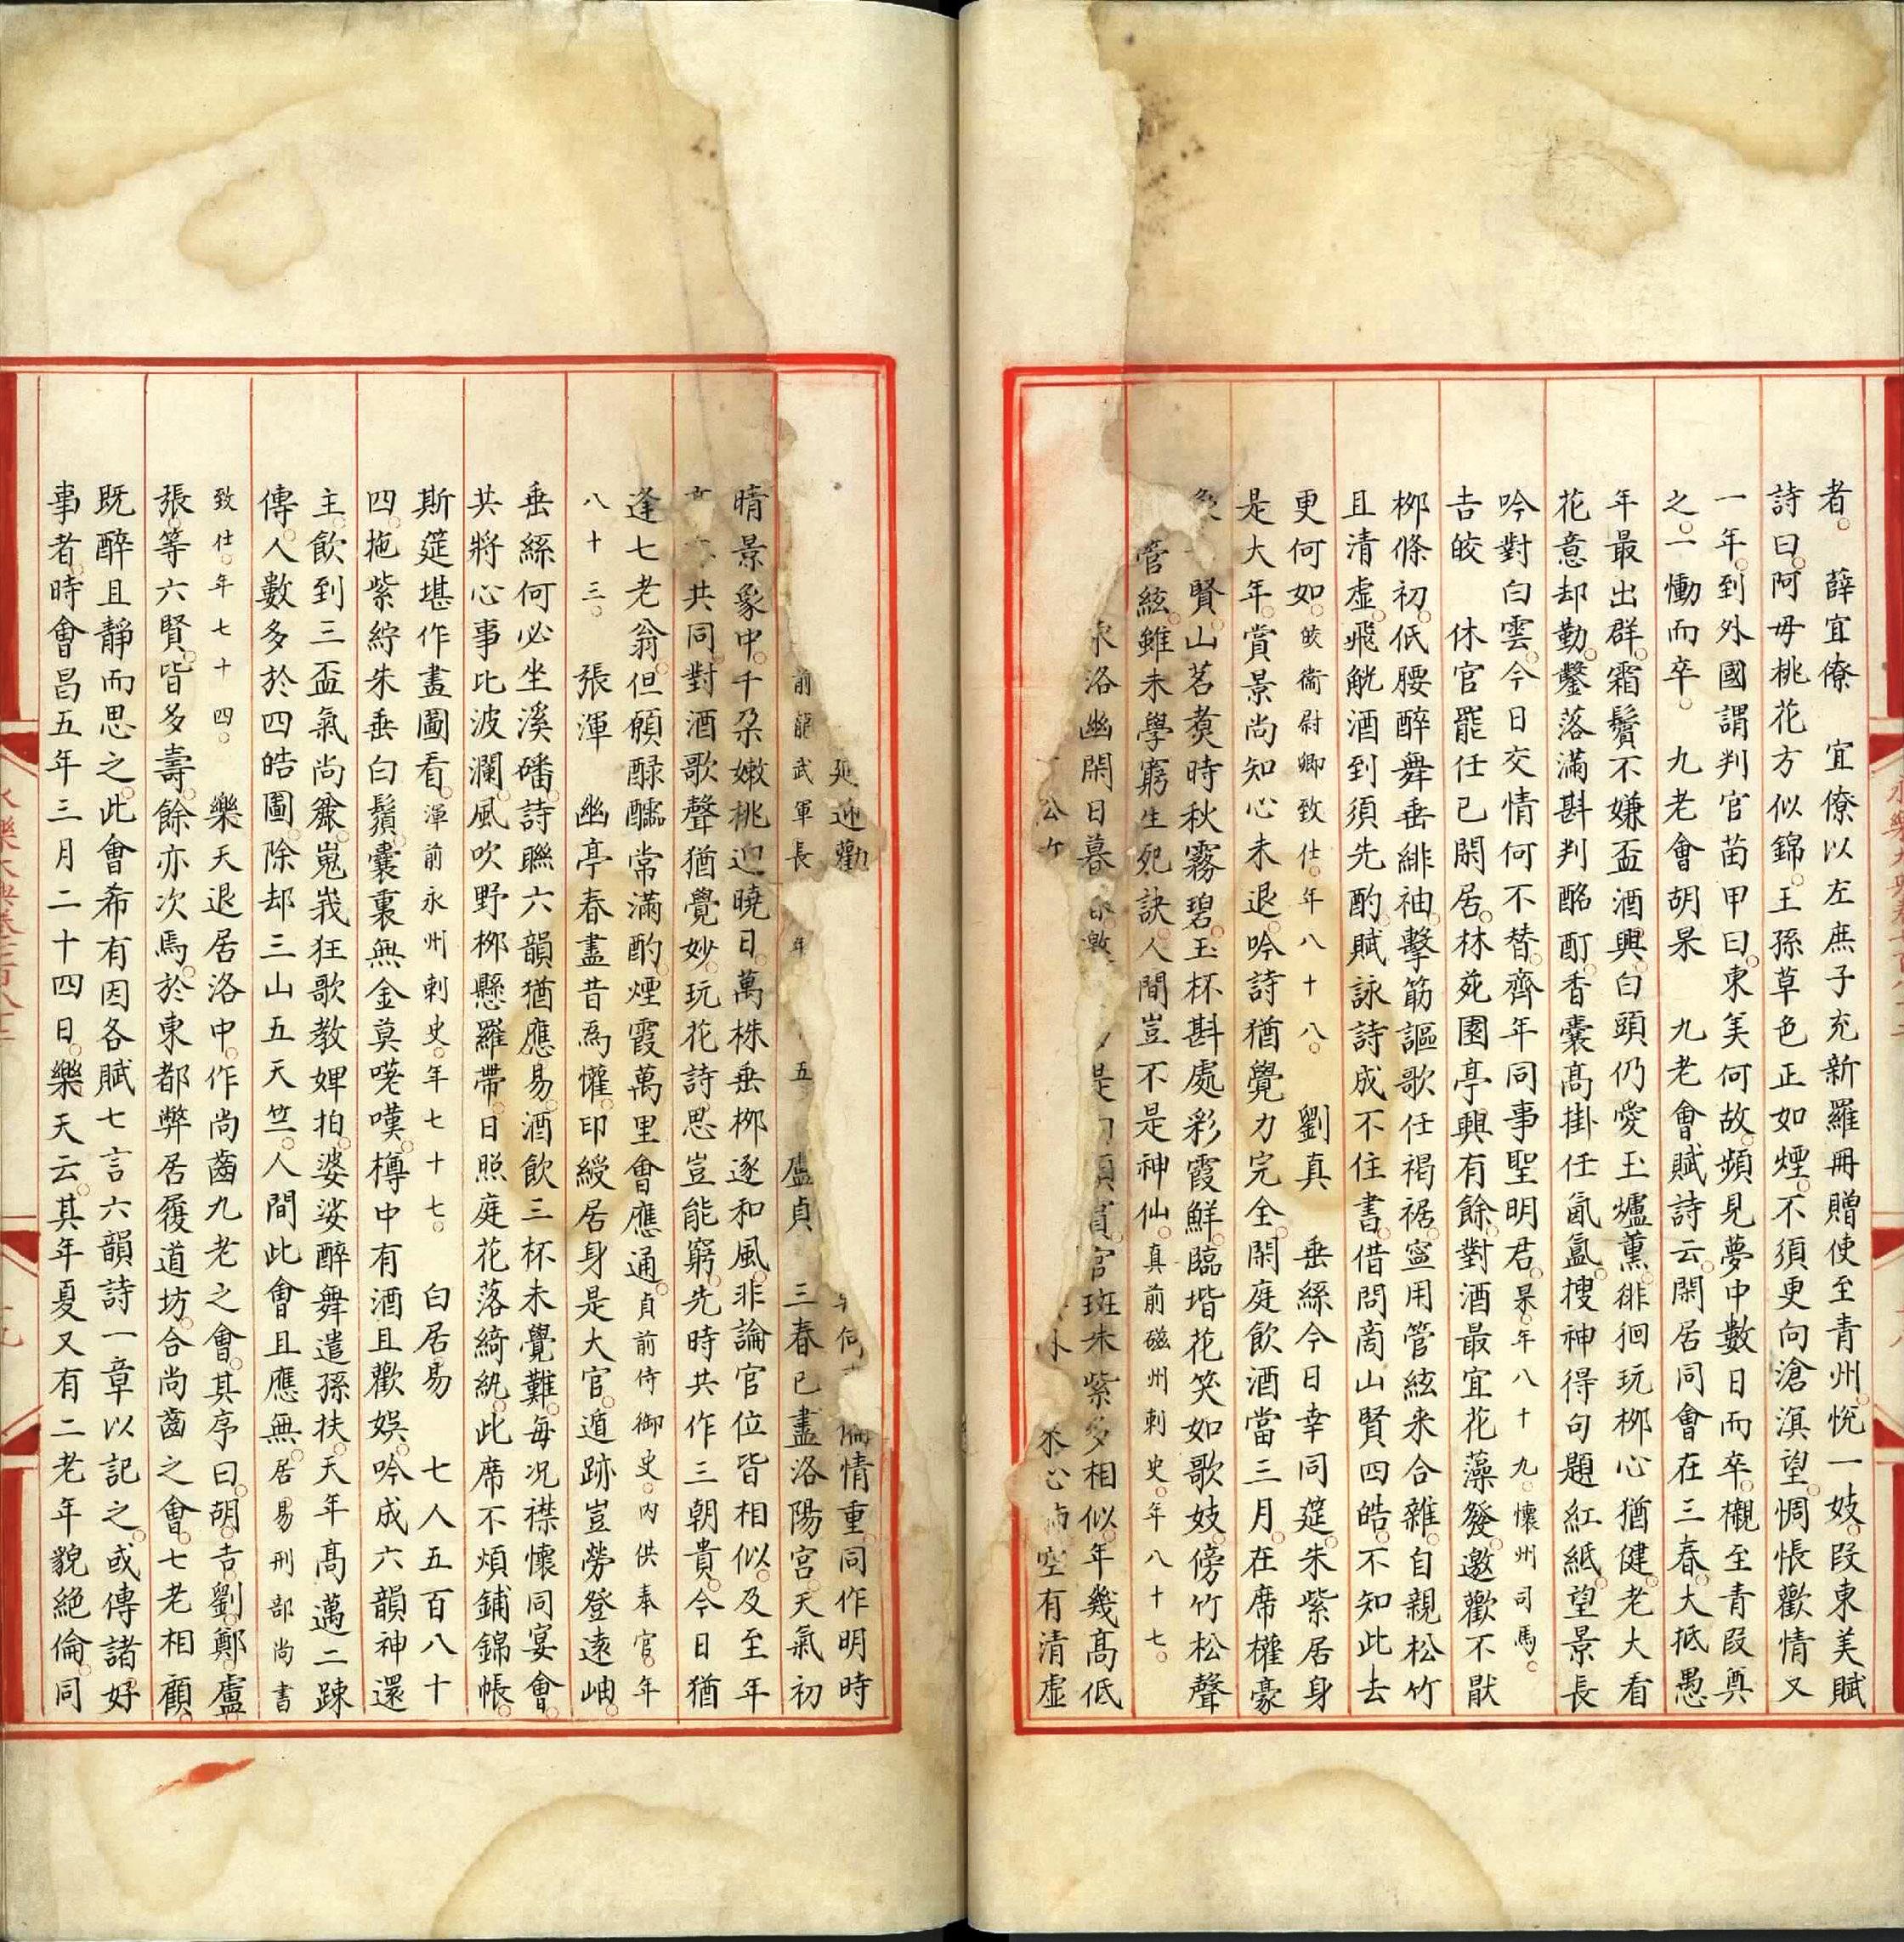 者。薛宜僚　宜僚以左庶子充新羅冊贈使至青州。悅一妓。段東美賦
詩曰。阿母桃花方似錦。王孫草色正如煙。不須更向滄溟望。惆悵歡情又
一年。到外國謂判官苗甲曰。東美何故。頻見夢中。數日而卒。櫬至青段奠
之。一慟而卒。　九老會胡杲　九老會賦詩云。閑居同會在三春。大抵愚
年最出群。霜鬢不嫌盃酒興。白頭仍愛玉爐薰。徘徊玩柳心猶健。老大看
花意却勤。鑿落滿斟判酩酊。香囊高掛任氤氳。搜神得句題紅紙。望景長
吟對白雲。今日交情何不替。齊年同事聖明君。杲。年八十九。懷州司馬。
吉皎　休官罷任已閑居。林苑園亭興有餘。對酒最宜花藻發。邀歡不厭
柳條初。低腰醉舞垂緋袖。擊筯謳歌任褐裾。寧用管絃来合雜。自親松竹
且清虛。飛觥酒到須先酌。賦詠詩成不住書。借問商山賢四皓。不知此去
更何如。皎衞尉卿致仕。年八十八。　劉真　垂絲今日幸同筵。朱紫居身
是大年。賞景尚知心未退。吟詩猶覺力完全。閑庭飲酒當三月。在席權豪
賢。山茗煑時秋霧碧。玉杯斟處彩霞鮮。臨堦花笑如歌妓。傍竹松聲
管絃。雖未學窮生死訣。人間豈不是神仙。真前磁州刺史。年八十七。
洛幽閑日暮 是 官班朱紫多相似。年幾高低
公 空有清虛
延迎勸 何 情重。同作明時
前龍武軍長 年 五 盧貞　三春已盡洛陽宮。天氣初
晴景象中。千朶嫩桃迎曉日。萬株垂柳逐和風。非論官位皆相似。及至年
共同。對酒歌聲猶覺妙。玩花詩思豈能窮。先時共作三朝貴。今日猶
逢七老翁。但願醁醽常滿酌。煙霞萬里會應通。貞前侍御史。内供奉官。年
八十三。　張渾　幽亭春盡昔為懽。印綬居身是大官。遁跡豈勞登遠岫。
垂絲何必坐溪磻。詩聯六韻猶應易。酒飲三杯未覺難。每况襟懷同宴會。
共將心事比波瀾。風吹野柳懸羅帶。日照庭花落綺紈。此席不煩鋪錦帳。
斯筵堪作畫圖看。渾前永州刺史。年七十七。　白居易　七人五百八十
四。拖紫紆朱垂白鬚。囊裏無金莫嗟嘆。樽中有酒且歡娛。吟成六韻神還
主。飲到三盃氣尚麄。嵬峩狂歌教婢拍。婆娑醉舞遣孫扶。天年高邁二踈
傳。人數多於四皓圖。除却三山五天竺。人間此會且應無。居易刑部尚書
致仕。年七十四。　樂天退居洛中。作尚齒九老之會。其序曰。胡。吉。劉。鄭。盧
張。等六賢。皆多壽。餘亦次焉。於東都弊居履道坊。合尚齒之會。七老相顧。
既醉且靜而思之。此會希有因各賦七言六韻詩一章以記之。或傳諸好
事者。時會昌五年三月二十四日。樂天云。其年夏又有二老年貌絶倫。同